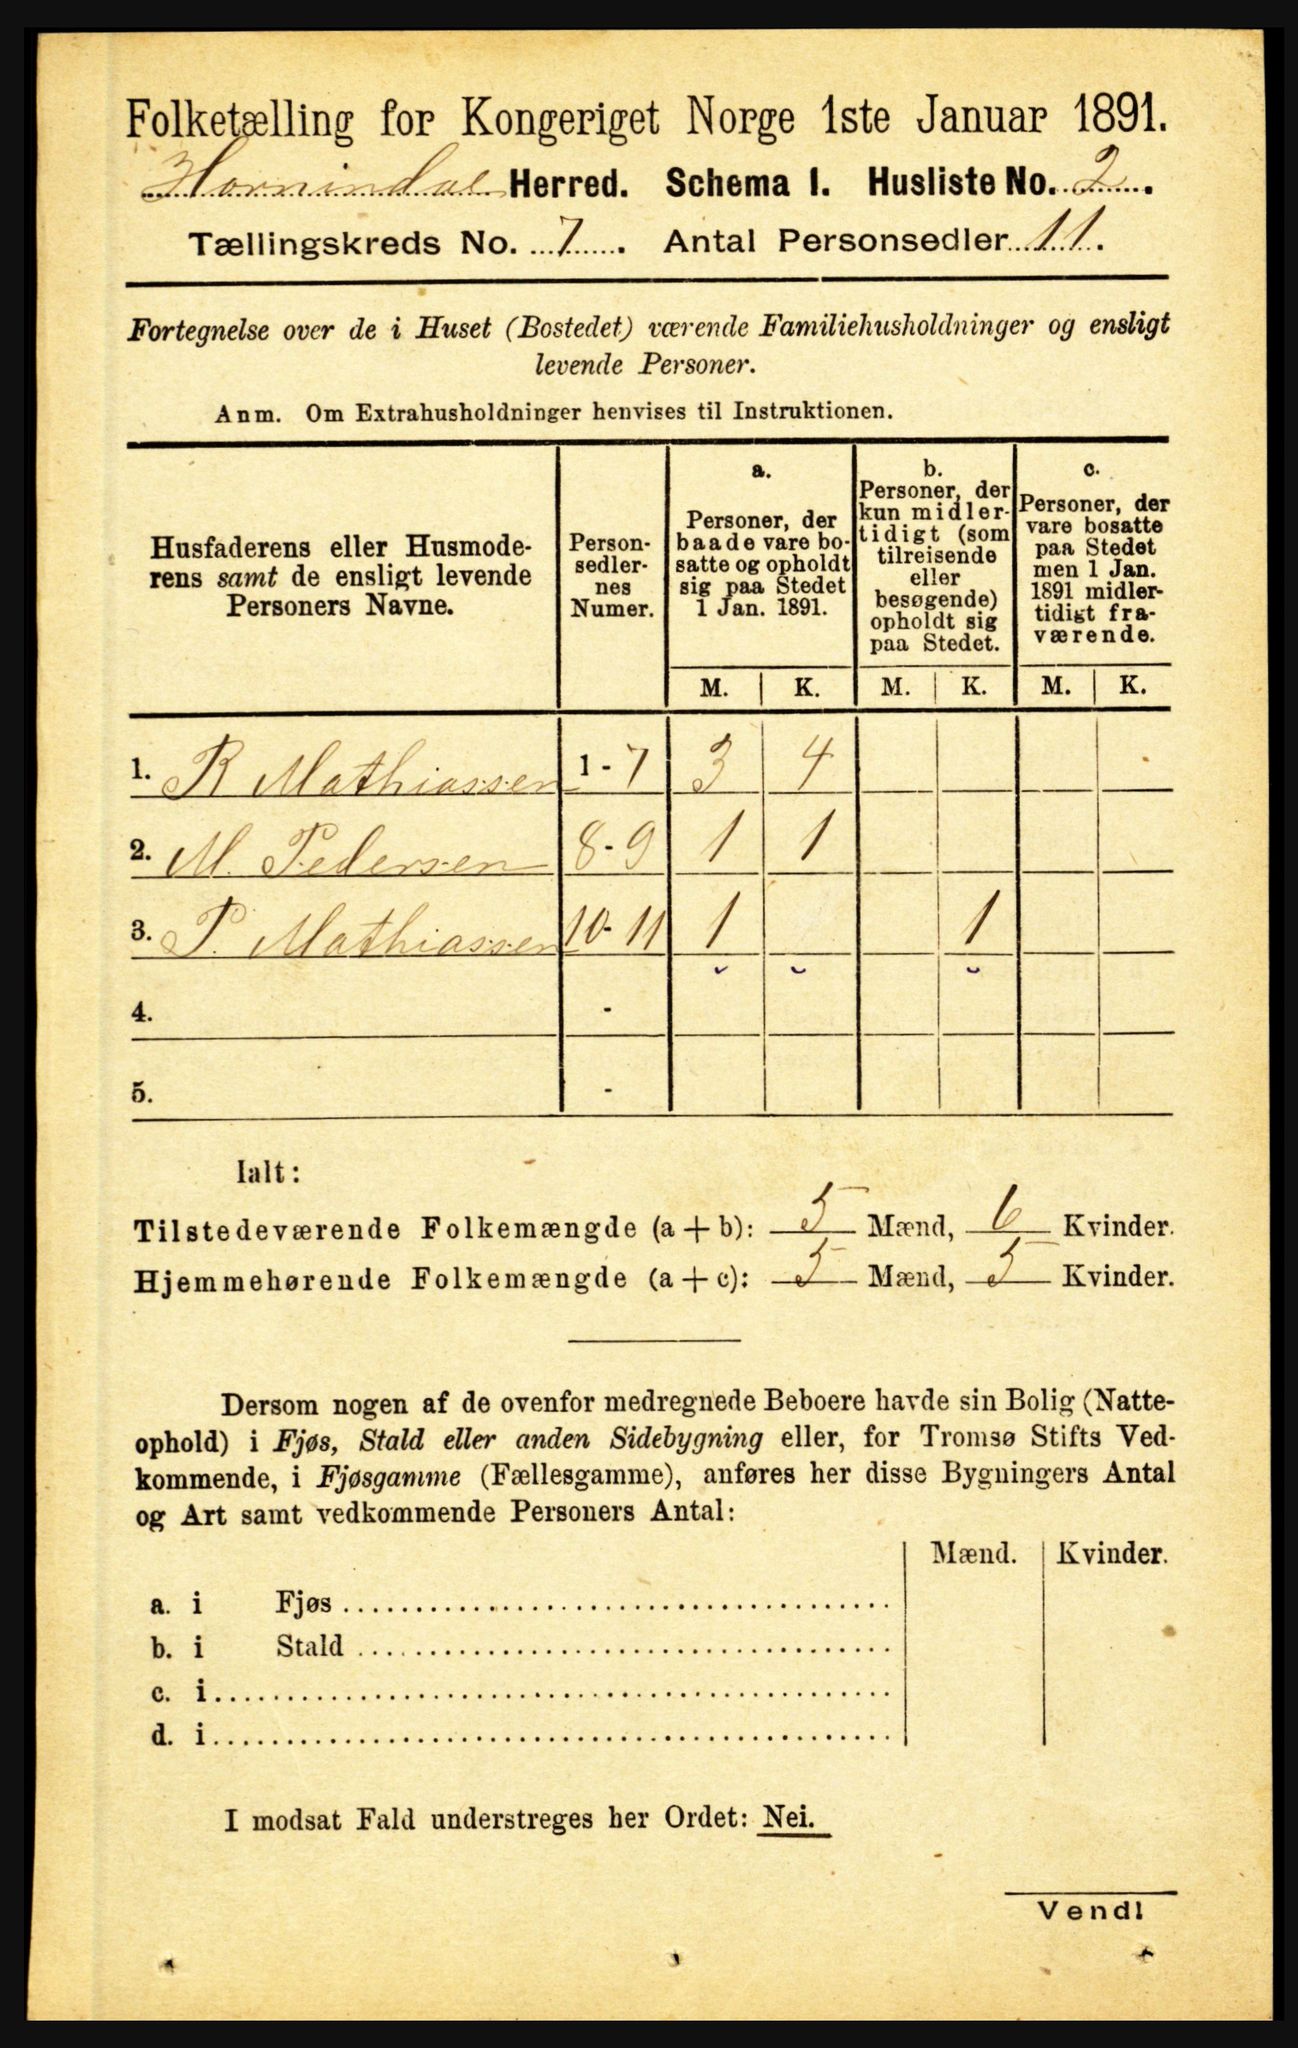 Folketælling for Kongeriget Norge 1ste Januar 1891.
Hornindal Herred. Schema I. Husliste No. 2.
Tællingskreds No. 7. Antal Personsedler 11.
Fortegnelse over de i Huset (Bostedet) værende Familiehusholdninger og ensligt
levende Personer.
Anm. Om Extrahusholdninger henvises til Instruktionen.
Husfaderens eller Husmode-
rens samt de ensligt levende
Personers Navne.
Person-
sedler-
nes
Numer.
a.
Personer, der
baade vare bo-
satte og opholdt
sig paa Stedet
1 Jan. 1891.
b.
Personer, der
kun midler-
tidigt (som
tilreisende
eller
besøgende)
opholdt sig
paa Stedet.
c.
Personer, der
vare bosatte
paa Stedet
men 1 Jan.
1891 midler-
tidigt fra-
værende.
M. K. M. K. M. K.
1. R Mathiassen 1 - 7 3 4
2. M. Pedersen 8 - 9 1 1
3. P. Mathiassen 10 - 11 1 1
4. -
5. -
Ialt:
Tilstedeværende Folkemængde (a + b): 5 Mænd, 6 Kvinder.
Hjemmehørende Folkemængde (a + c): 5 Mænd, 5 Kvinder.
Dersom nogen af de ovenfor medregnede Beboere havde sin Bolig (Natte-
ophold) i Fjøs, Stald eller anden Sidebygning eller, for Tromsø Stifts Ved-
kommende, i Fjøsgamme (Fællesgamme), anføres her disse Bygningers Antal
og Art samt vedkommende Personers Antal:
Mænd. Kvinder.
a. i Fjøs
b. i Stald
c. i
d. i
I modsat Fald understreges her Ordet: Nei.
Vend!